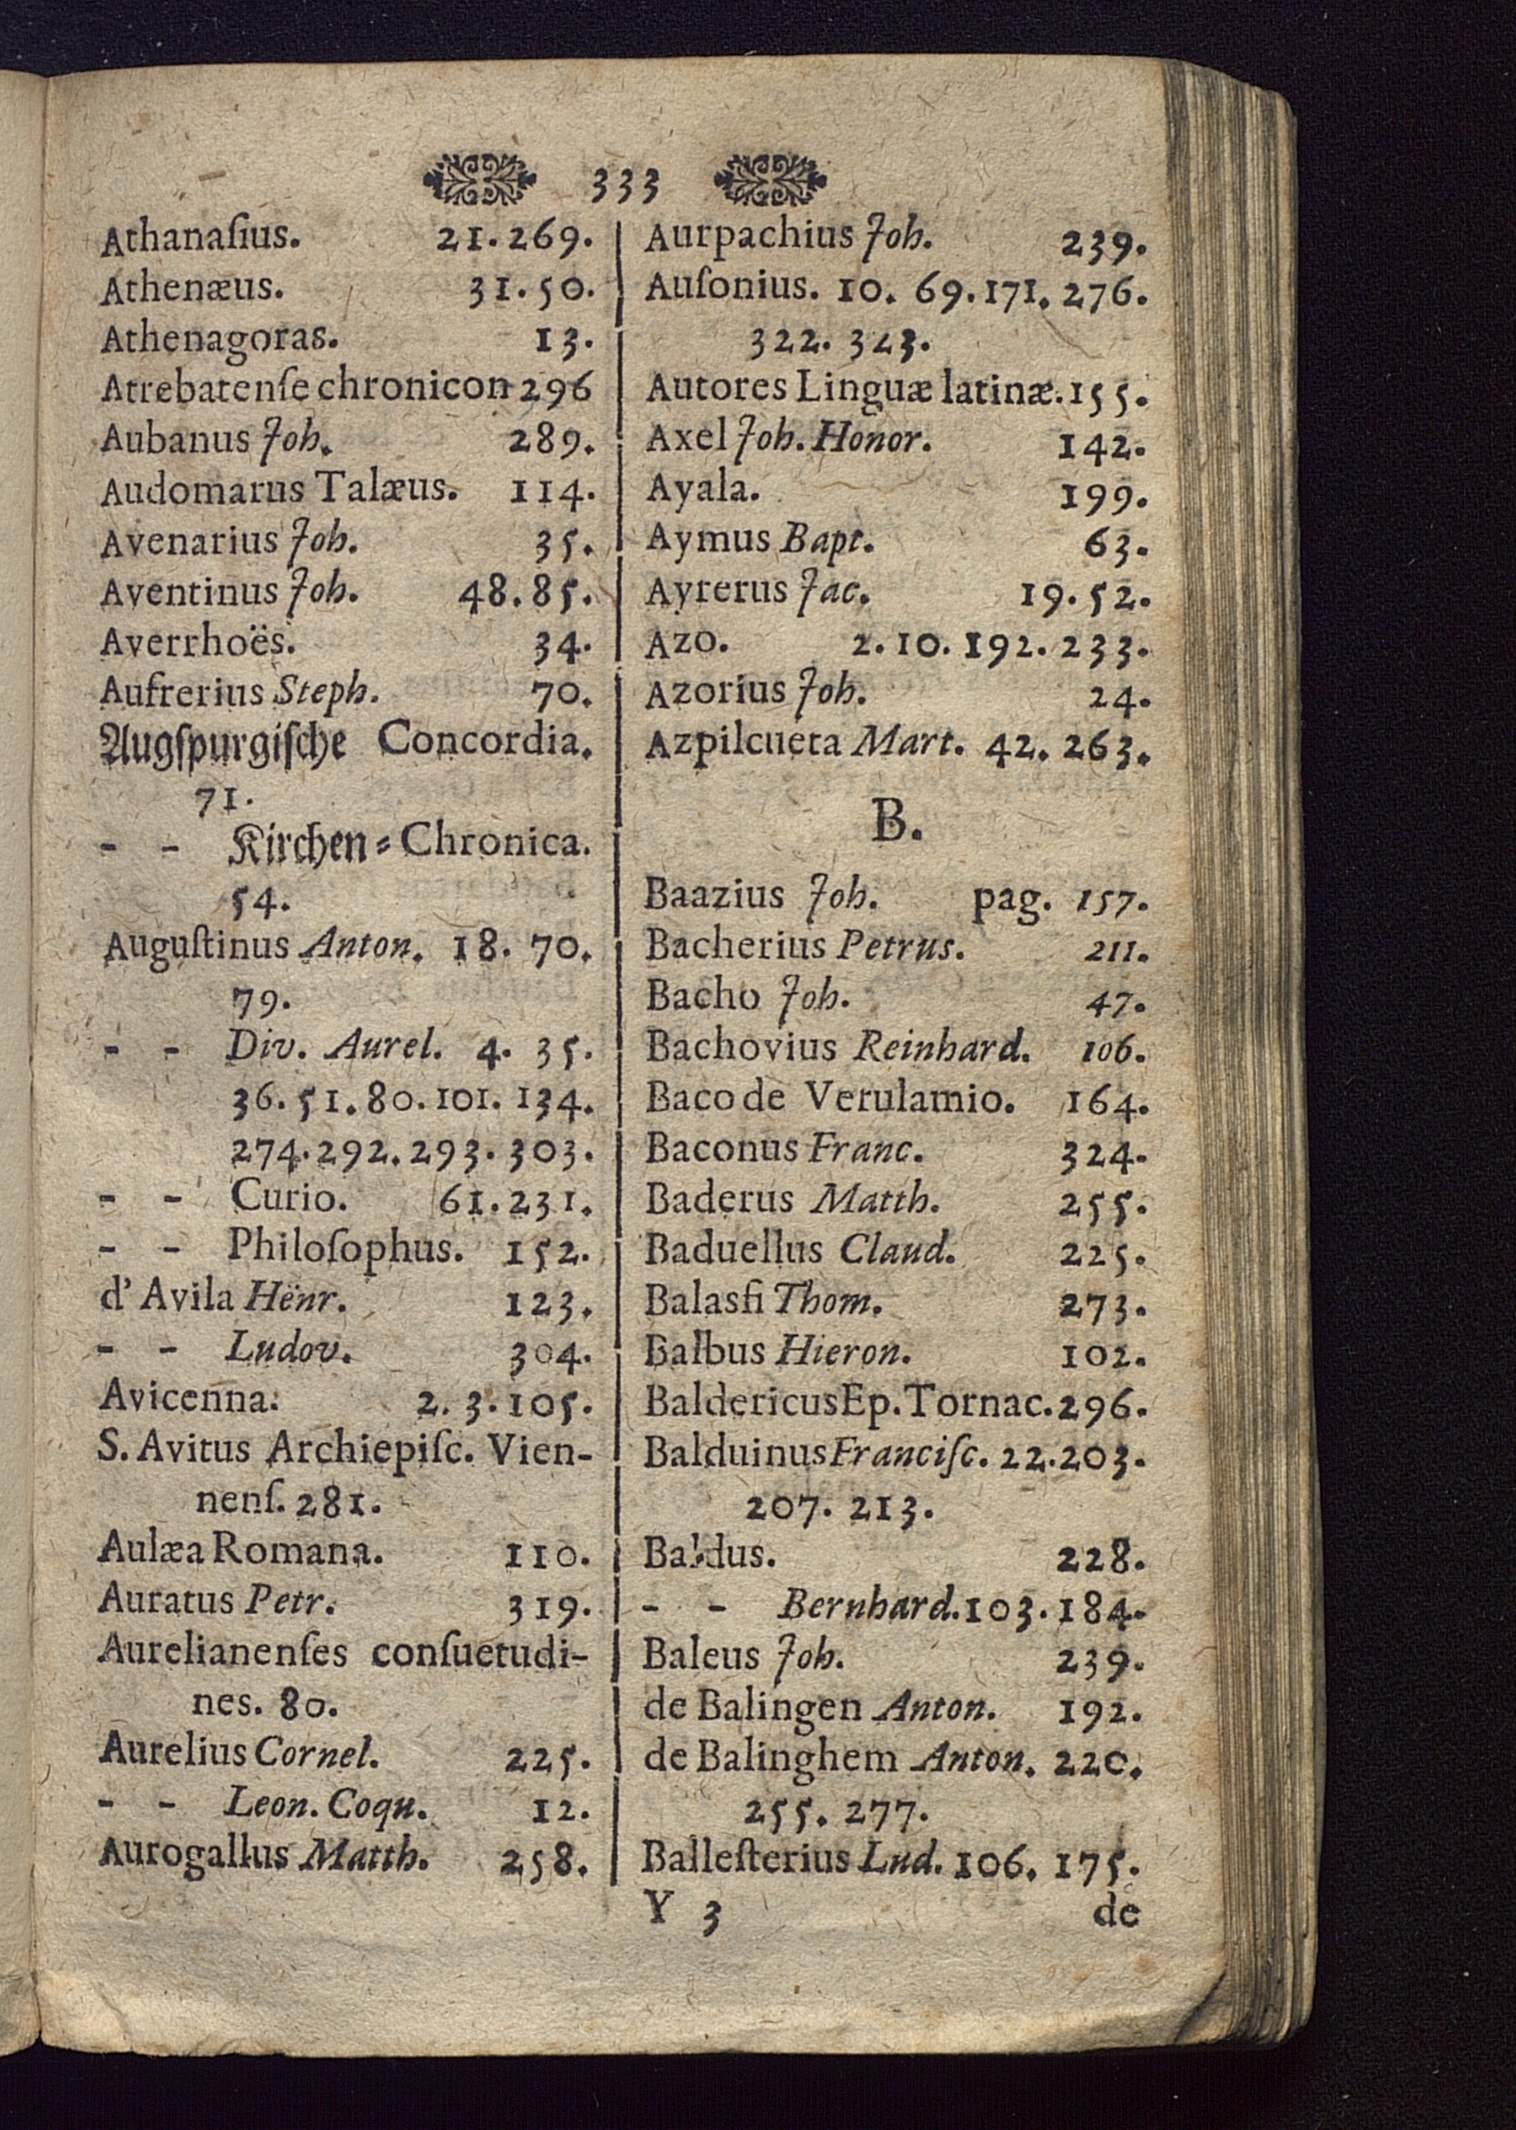 333
Athanaſius. 21. 269.
Athenæus. 31. 50.
Athenagoras. 13.
Atrebatenſe chronicon 296
Aubanus Joh. 289.
Audomarus Talæus. 114.
Avenarius Joh. 35.
Aventinus Joh. 48. 85.
Averrhoës. 34.
Aufrerius Steph. 70.
Augſpurgiſche Concordia.
71.
- - Kirchen⸗Chronica.
54.
Auguſtinus Anton. 18. 70.
79.
- - Div. Aurel. 4. 35.
36. 51. 80. 101. 134.
274. 292. 293. 303.
- - Curio. 61. 231.
- - Philoſophus. 152.
d' Avila Hënr. 123.
- - Ludov. 304.
Avicenna. 2. 3. 105.
S. Avitus Archiepiſc. Vien-
nenſ. 281.
Aulæa Romana. 110.
Auratus Petr. 319.
Aurelianenſes conſuetudi-
nes. 80.
Aurelius Cornel. 225.
- - Leon. Coqu. 12.
Aurogallus Matth. 258.
Aurpachius Joh. 239.
Auſonius. 10. 69. 171. 276.
322. 323.
Autores Linguæ latinæ. 155.
Axel Joh. Honor. 142.
Ayala. 199.
Aymus Bapt. 63.
Ayrerus Jac. 19. 52.
Azo. 2. 10. 192. 233.
Azorius Joh. 24.
Azpilcueta Mart. 42. 263.
B.
Baazius Joh. pag. 157.
Bacherius Petrus. 211.
Bacho Joh. 47.
Bachovius Reinhard. 106.
Baco de Verulamio. 164.
Baconus Franc. 324.
Baderus Matth. 255.
Baduellus Claud. 225.
Balasfi Thom. 273.
Balbus Hieron. 102.
Baldericus Ep. Tornac. 296.
Balduinus Franciſc. 22. 203.
207. 213.
Baldus. 228.
- - Bernhard. 103. 184.
Baleus Joh. 239.
de Balingen Anton. 192.
de Balinghem Anton. 220.
255. 277.
Balleſterius Lud. 106. 175.
Y 3 de